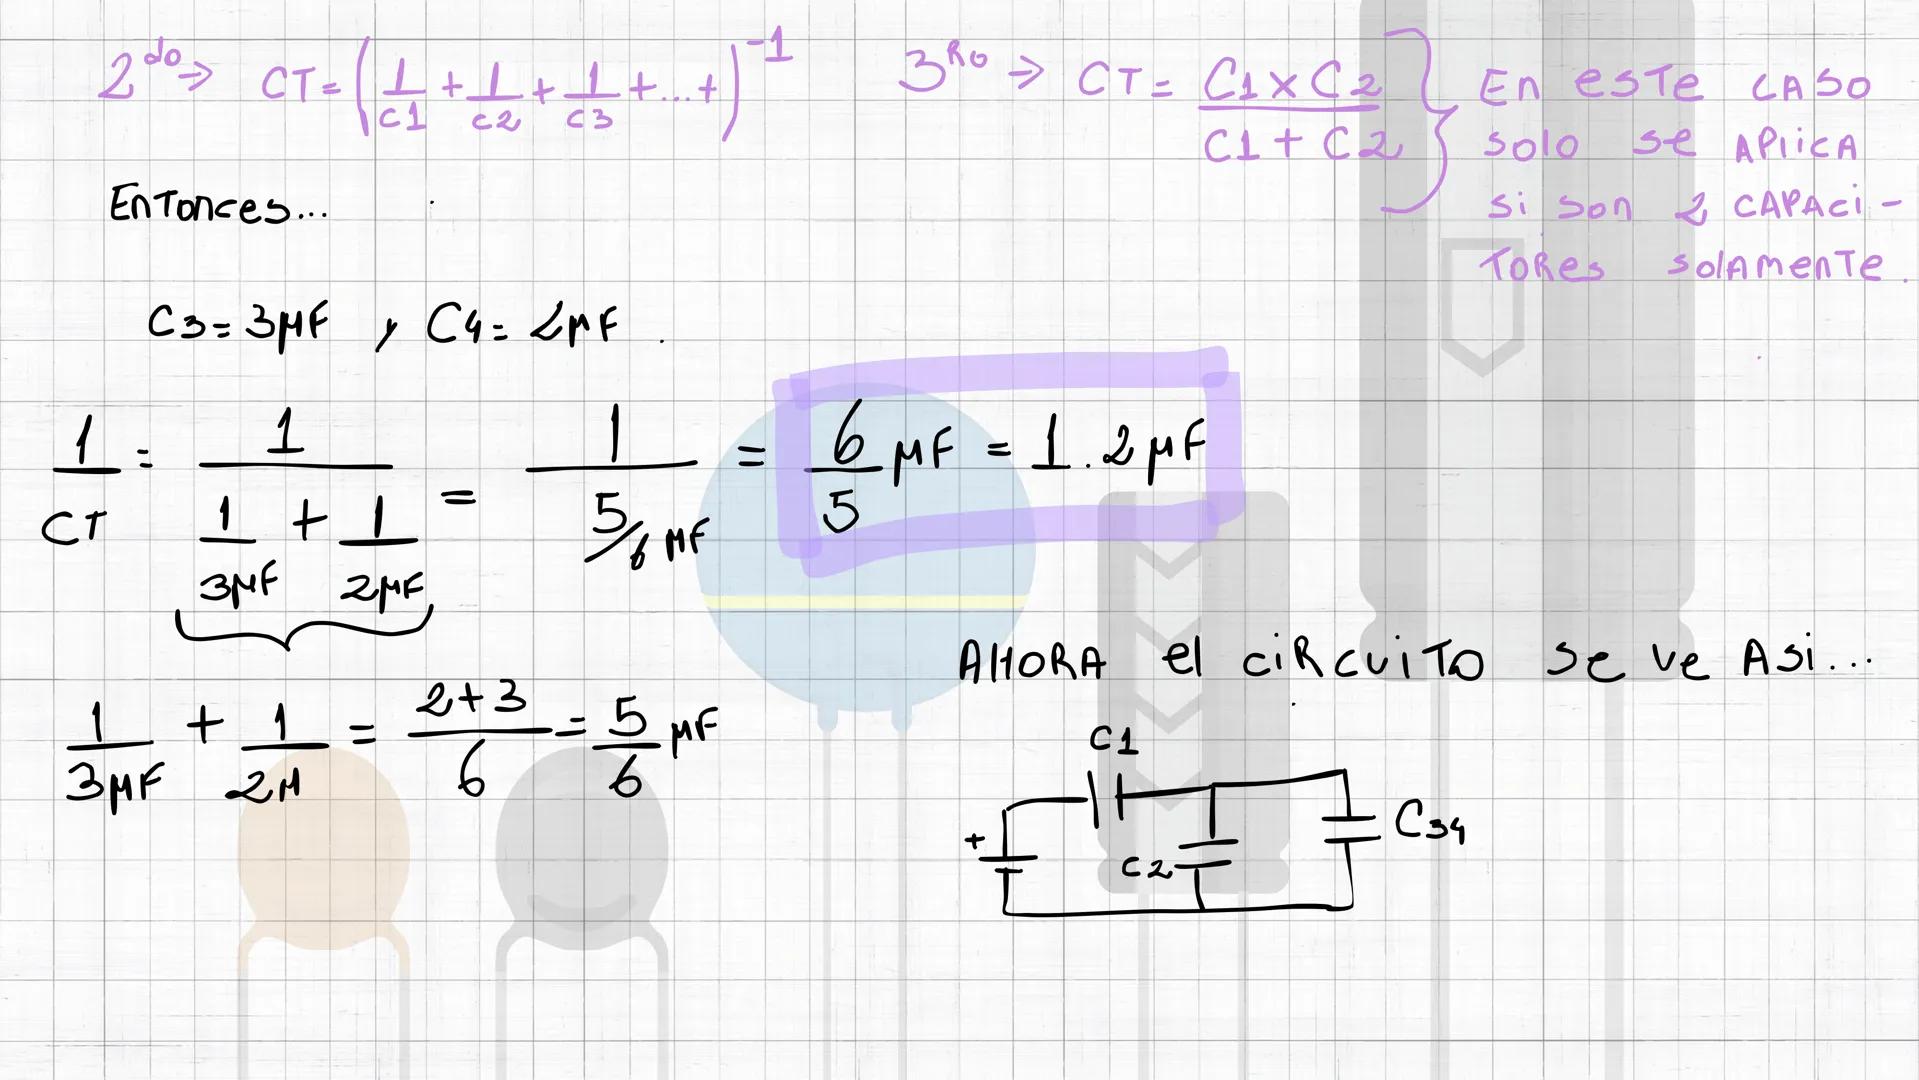 2do → CT = (1/C1 + 1/C2 + 1/C3 + ... +)^-1
3Ro → CT = C1 x C2 / C1 + C2
En este caso
solo se aplica
si son 2 capaci-
tores solamente.
Entonces...
C3 = 3μF , C4 = 2μF.
1/CT = 1/(1/3μF + 1/2μF) = 1/(5/6 μF) = 6/5 μF = 1.2μF
1/3μF + 1/2μ = 2+3/6 = 5/6 μF
Ahora el circuito se ve asi...
C1
+
C2
C34